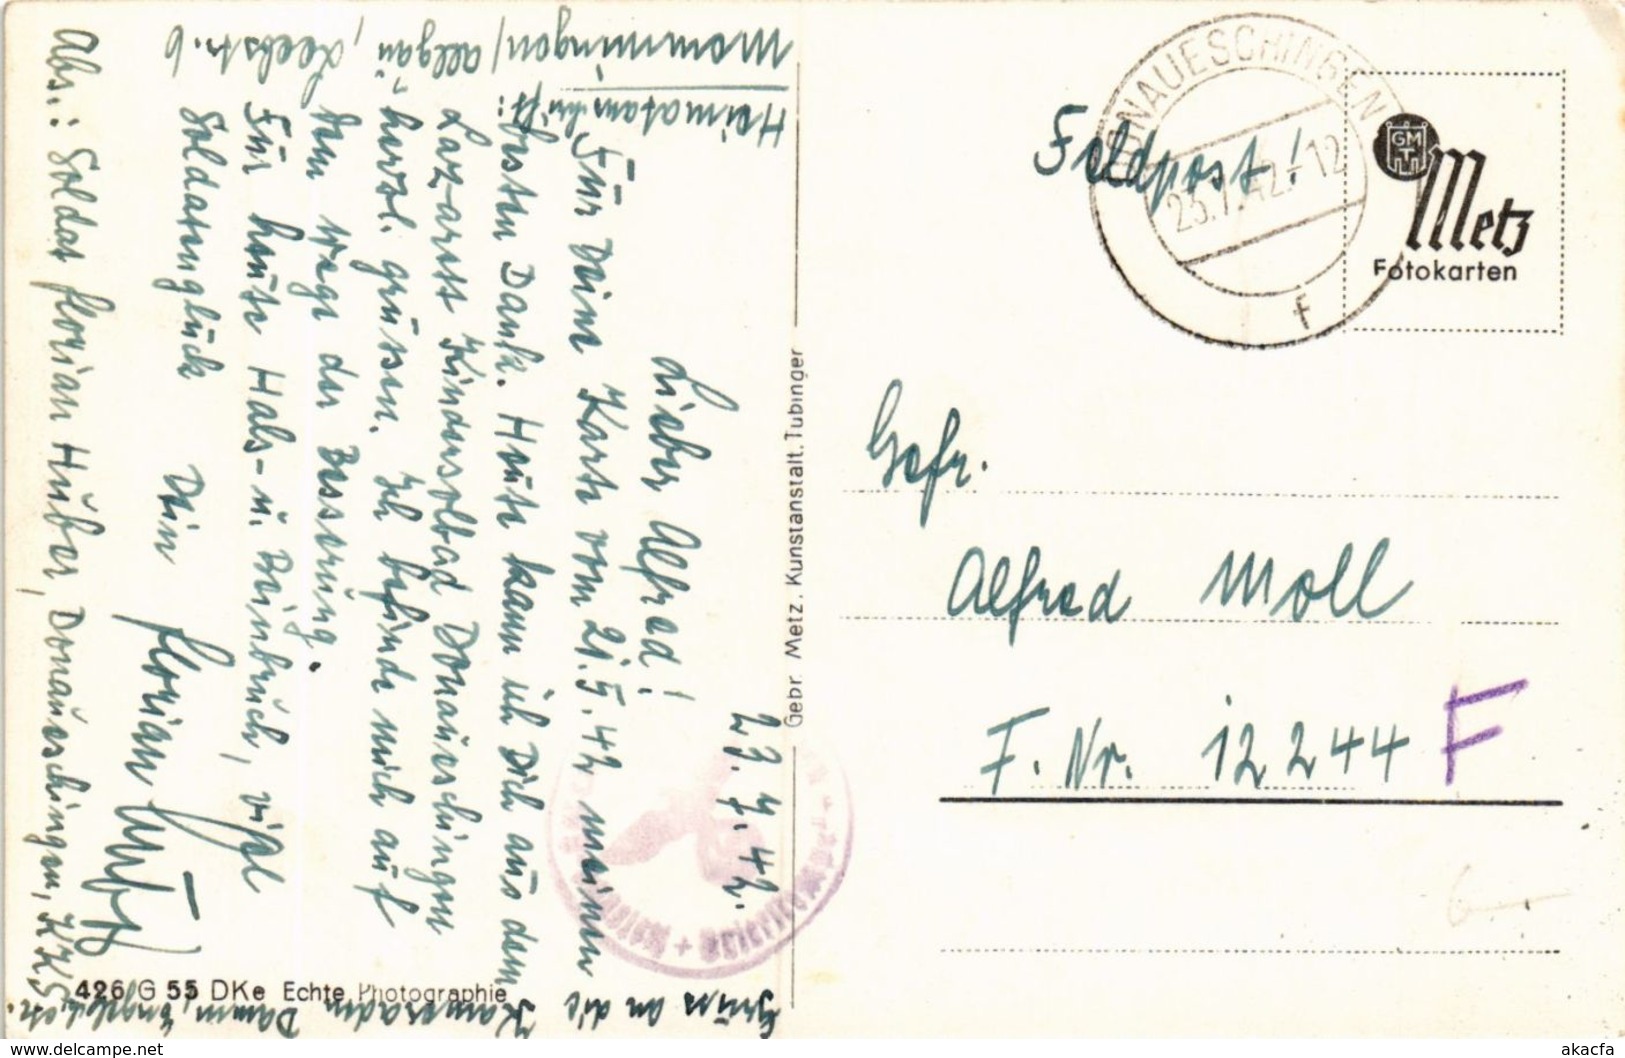 Heimatanschrift:
Memmingen/Allgäu,
23.7.42.
Lieber Alfred!
Für Deine Karte vom 21.5.42 meinen
besten Dank. Heute kann ich Dich aus dem
Lazarett Kindersolbad Donaueschingen
herzl. grüssen. Ich befinde mich auf
dem Wege der Besserung.
Für heute Hals- u. Beinbruch, viel
Soldatenglück Dein
Florian
Abs.: Soldat Florian Huber, Donaueschingen,
Gruss an die
Kameraden Damm,
426 G 55 DKe Echte Photographie
Gebr. Metz, Kunstanstalt, Tübingen
Feldpost!
DONAUESCHINGEN
23.7.42.-12
f
GMT
Metz
Fotokarten
Gefr.
Alfred Moll
F. Nr. 12244 F
akpool.co.uk